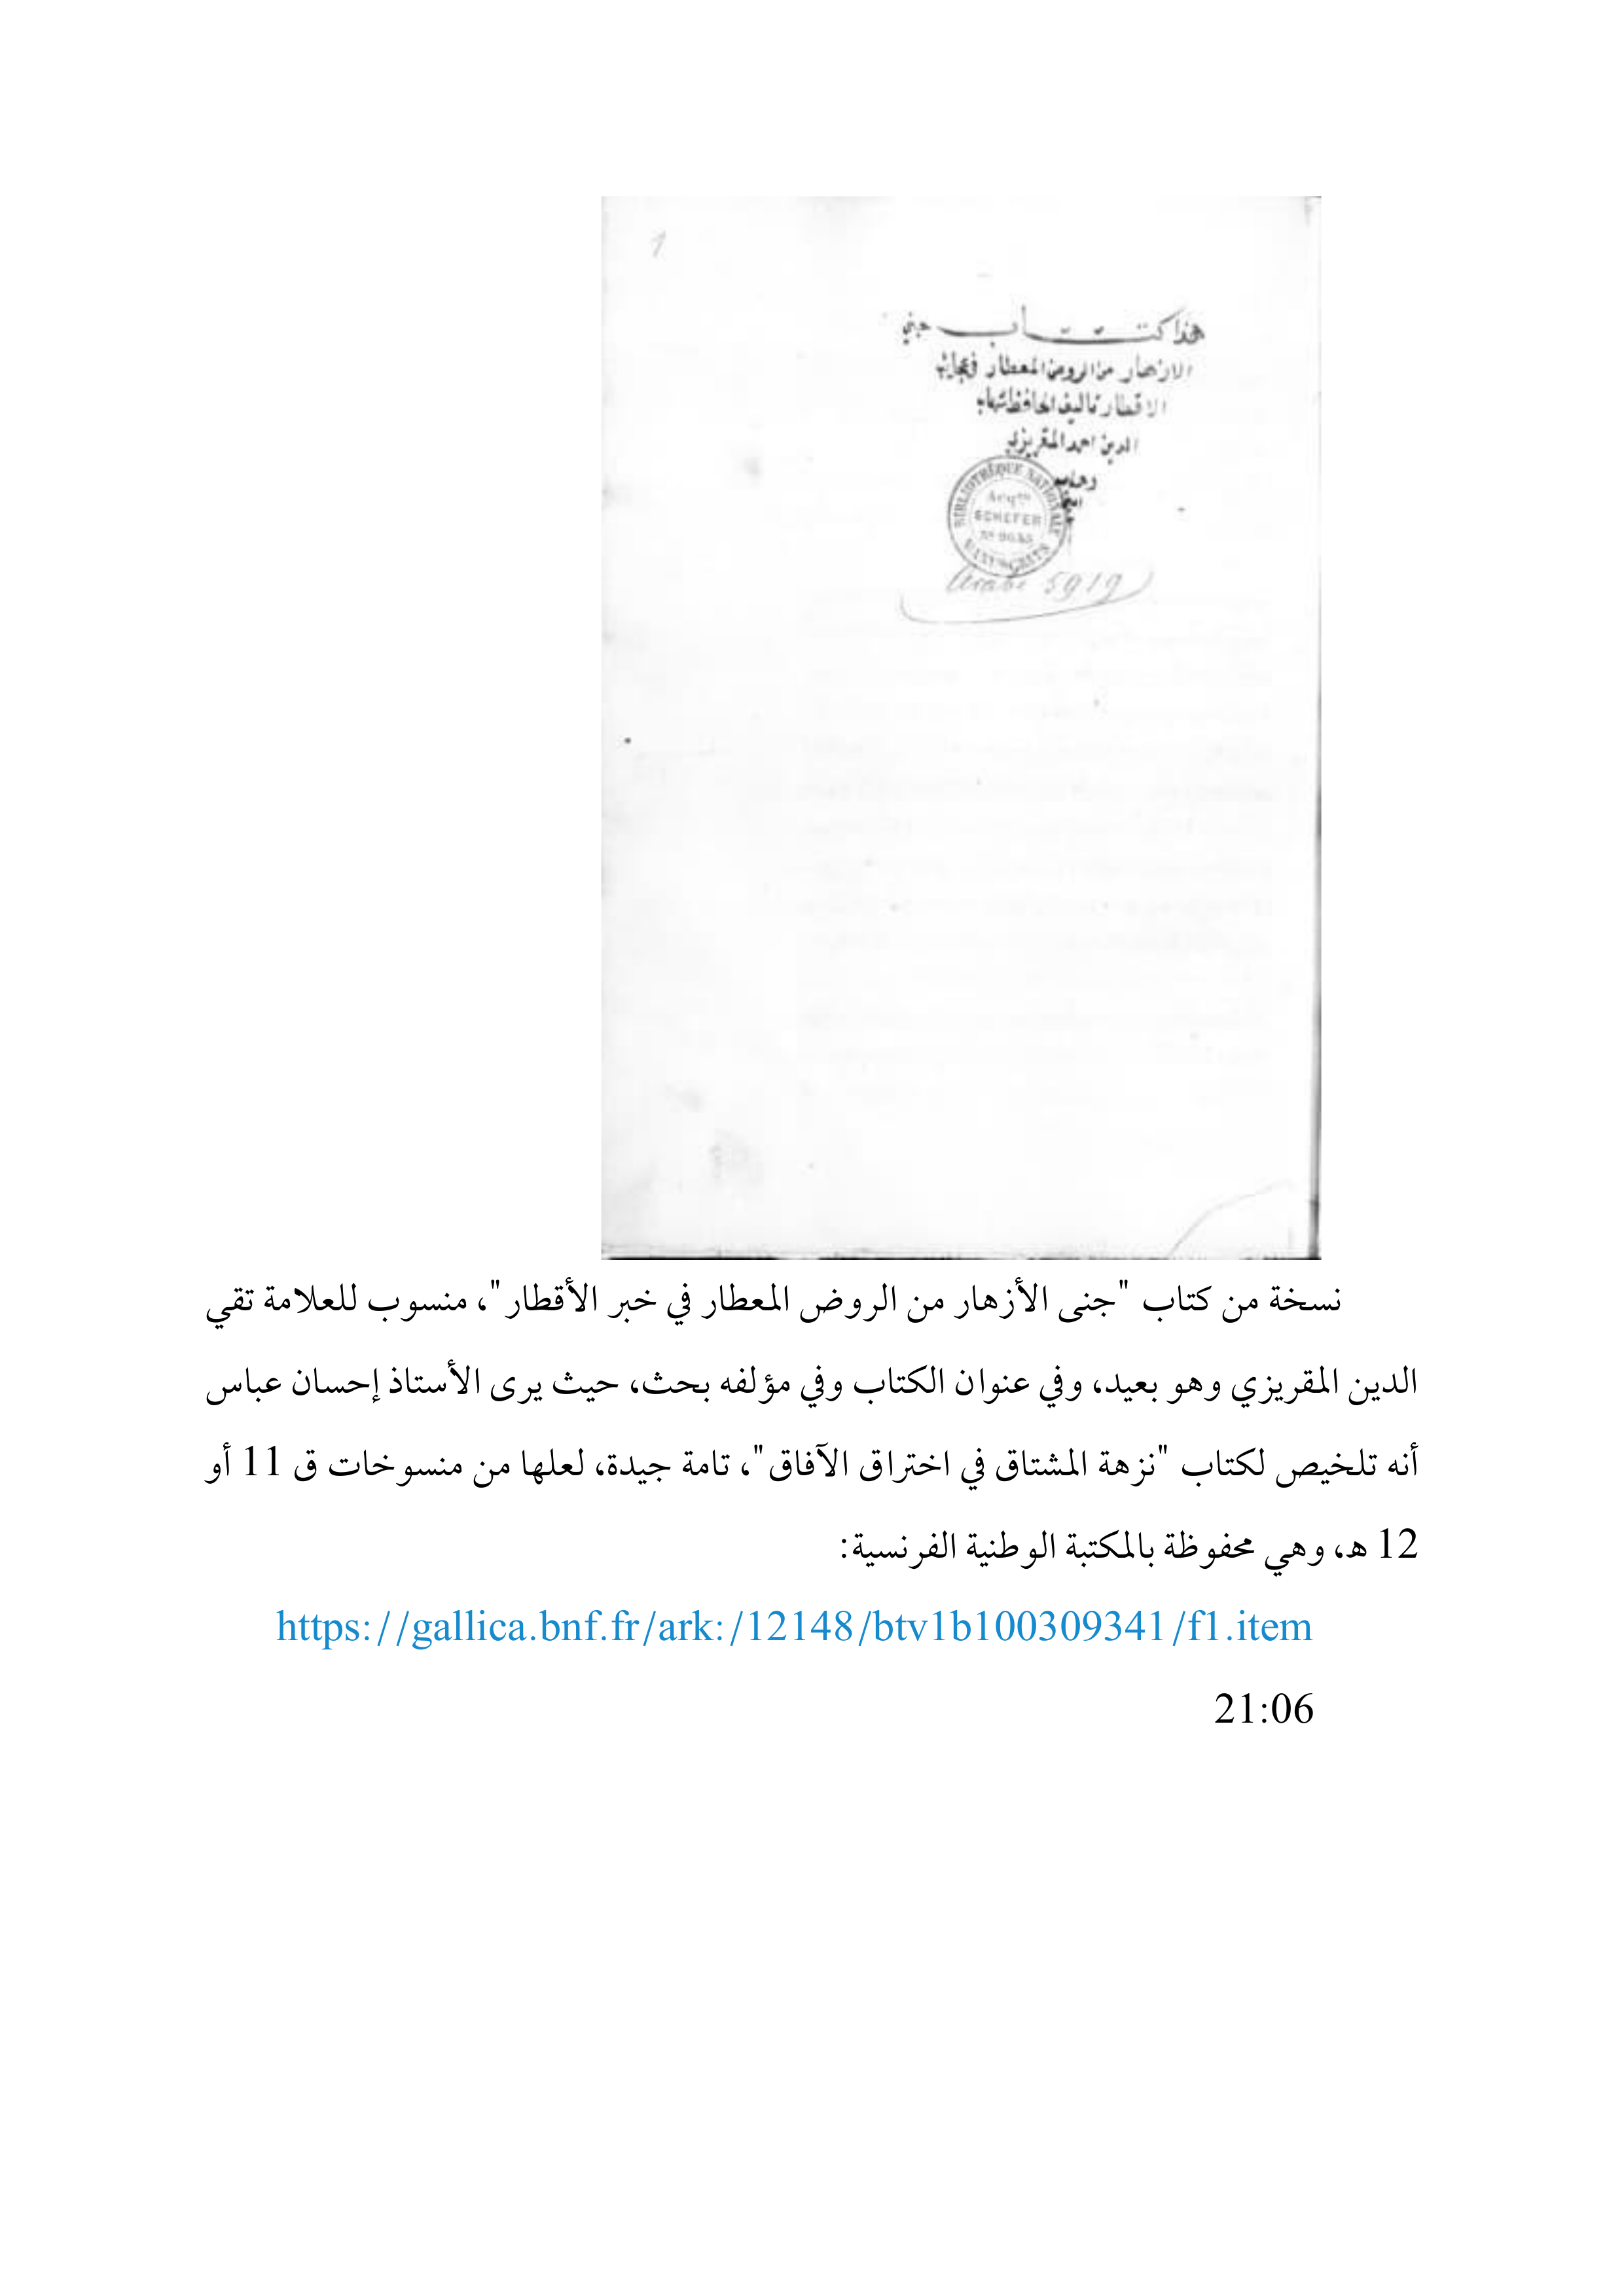 1
هذا كتاب جني
الازهار من الروض المعطار في عجايب
الاقطار تاليف الحافظ شهاب
الدين احمد المقريزي
BIBLIOTHÈQUE NATIONALE
Acqon
SCHEFER
MANUSCRITS
Arabe 5919
نسخة من كتاب "جنى الأزهار من الروض المعطار في خبر الأقطار"، منسوب للعلامة تقي
الدين المقريزي وهو بعيد، وفي عنوان الكتاب وفي مؤلفه بحث، حيث يرى الأستاذ إحسان عباس
أنه تلخيص لكتاب "نزهة المشتاق في اختراق الآفاق"، تامة جيدة، لعلها من منسوخات ق 11 أو
12 هـ، وهي محفوظة بالمكتبة الوطنية الفرنسية:
https://gallica.bnf.fr/ark:/12148/btv1b100309341/f1.item
21:06